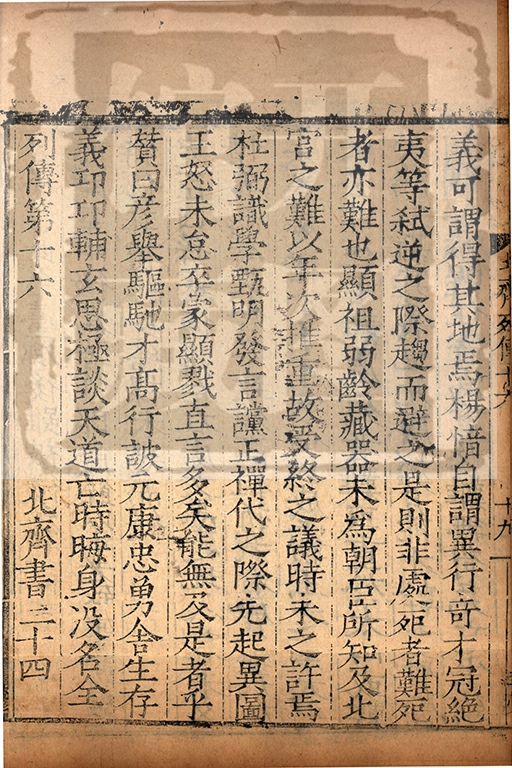 義可謂得其地焉楊愔自謂異行奇才冠絶
夷等弑逆之際趨而避之是則非處死者難死
者亦難也顯祖弱齡藏器未爲朝臣所知及北
宫之難以年次推重故受終之議時未之許焉
杜弼識學甄明發言讜正禪代之際先起異圖
王怒未怠卒蒙顯戮直言多矣能無及是者乎
賛曰彦舉驅馳才髙行詖元康忠勇舍生存
義卭卭輔玄思極談天道亡時晦身没名全
列傳第十六 北齊書二十四
北齊列傳十六 十九